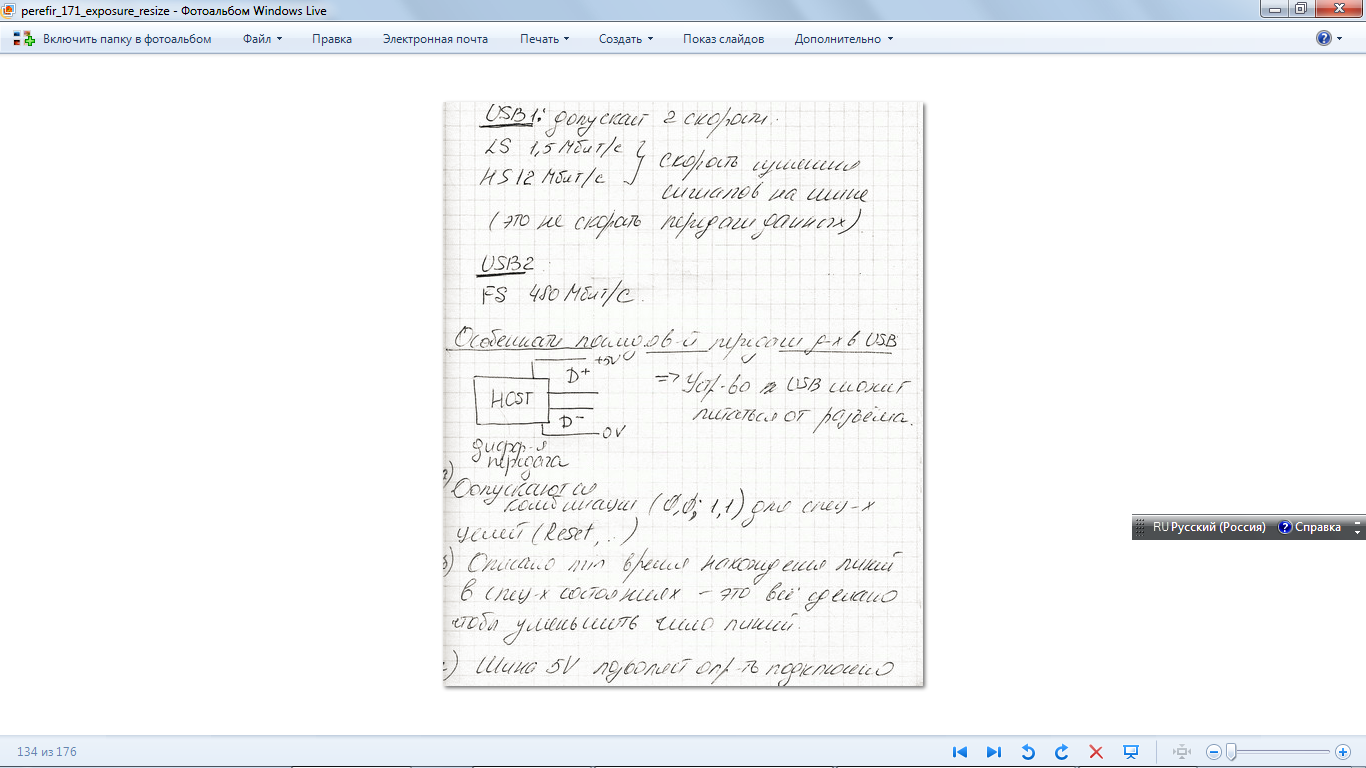 perefir_171_exposure_resize - Фотоальбом Windows Live
Включить папку в фотоальбом Файл Правка Электронная почта Печать Создать Показ слайдов Дополнительно
USB1: допускает 2 скорости.
LS 1,5 Мбит/с
HS 12 Мбит/с
скорость
сигналов на шине
(это не скорость передачи данных)
USB2
FS 480 Мбит/с.
Особенности передачи д-х в USB
+5V
D+
HOST
D-
0V
=> Устр-во USB может
питаться от разъёма.
дифф-я
передача
Допускаются
комбинации (0,0; 1,1) для спец-х
целей (Reset, ..)
в) Описано время нахождения линий
в спец-х состояниях – это всё сделано
чтобы уменьшить число линий.
Шина 5V позволяет опр-ть подключено
RU Русский (Россия) Справка
134 из 176